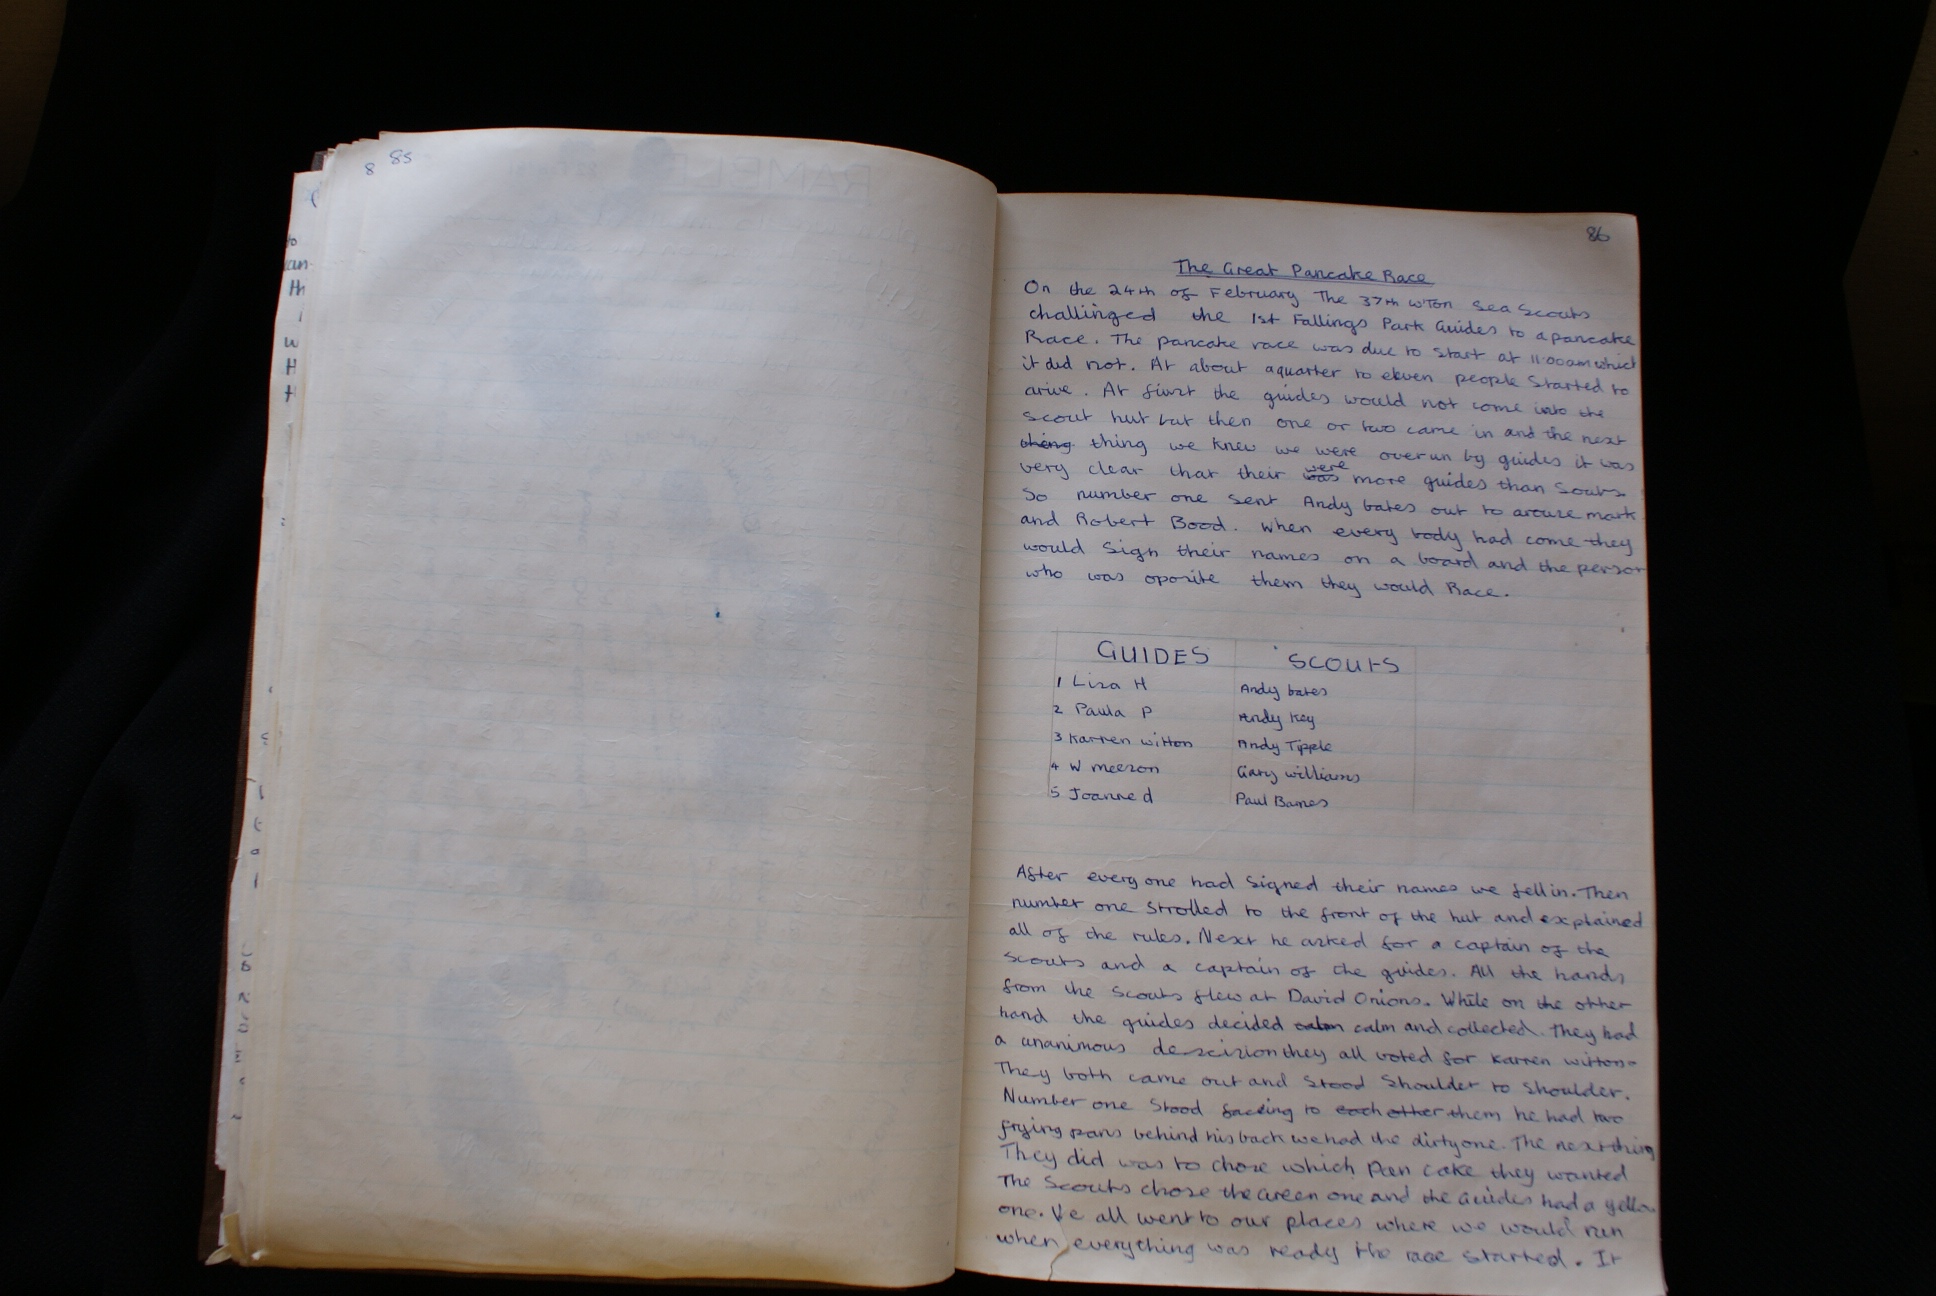 8 85
86
The Great Pancake Race
On the 24th of February The 37th W'Ton Sea Scouts
challinged the 1st Fallings Park Guides to a pancake
Race. The pancake race was due to start at 11.00am which
it did not. At about aquarter to eleven people Started to
arive. At first the guides would not come into the
scout hut but then one or two came in and the next
thing thing we knew we were overun by guides it was
very clear that their was were more guides than Scouts.
So number one sent Andy bates out to arouse mark
and Robert Bood. When every body had come they
would Sign their names on a board and the person
who was oposite them they would Race.
GUIDES SCOUTS
1 Lisa H Andy bates
2 Paula P Andy Key
3 Karren witton Andy Tipple
4 W meeson Gary williams
5 Joanne d Paul Barnes
After every one had Signed their names we fell in. Then
number one Strolled to the front of the hut and explained
all of the rules. Next he asked for a captain of the
scouts and a captain of the guides. All the hands
from the Scouts flew at David Onions. While on the other
hand the guides decided calm calm and collected. They had
a unanimous descision they all voted for Karren witton.
They both came out and Stood Shoulder to Shoulder.
Number one Stood facing to each other them he had two
frying pans behind his back we had the dirty one. The next thing
They did was to chose which Pan cake they wanted
The Scouts chose the Green one and the Guides had a yellow
one. We all went to our places where we would run
when everything was ready the race Started. It